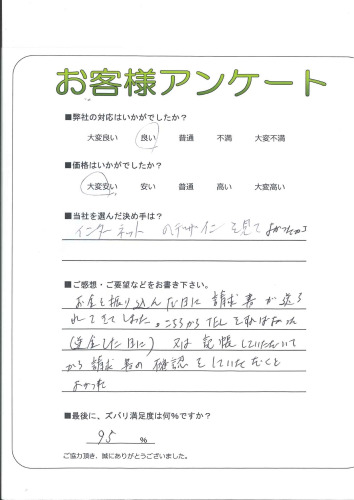 お客様アンケート
■弊社の対応はいかがでしたか?
大変良い 良い 普通 不満 大変不満
■価格はいかがでしたか?
大変安い 安い 普通 高い 大変高い
■当社を選んだ決め手は?
インターネット のデザインを見て よかったから
■ご感想・ご要望などをお書き下さい。
お金を振り込んだ日に 請求書が送ら
れてきてしまった。こちらからTELをすればよかった
(送金した日に) 又は 記帳していただいて
から請求書の確認をしていただくと
よかった
■最後に、ズバリ満足度は何%ですか?
95 %
ご協力頂き、誠にありがとうございました。